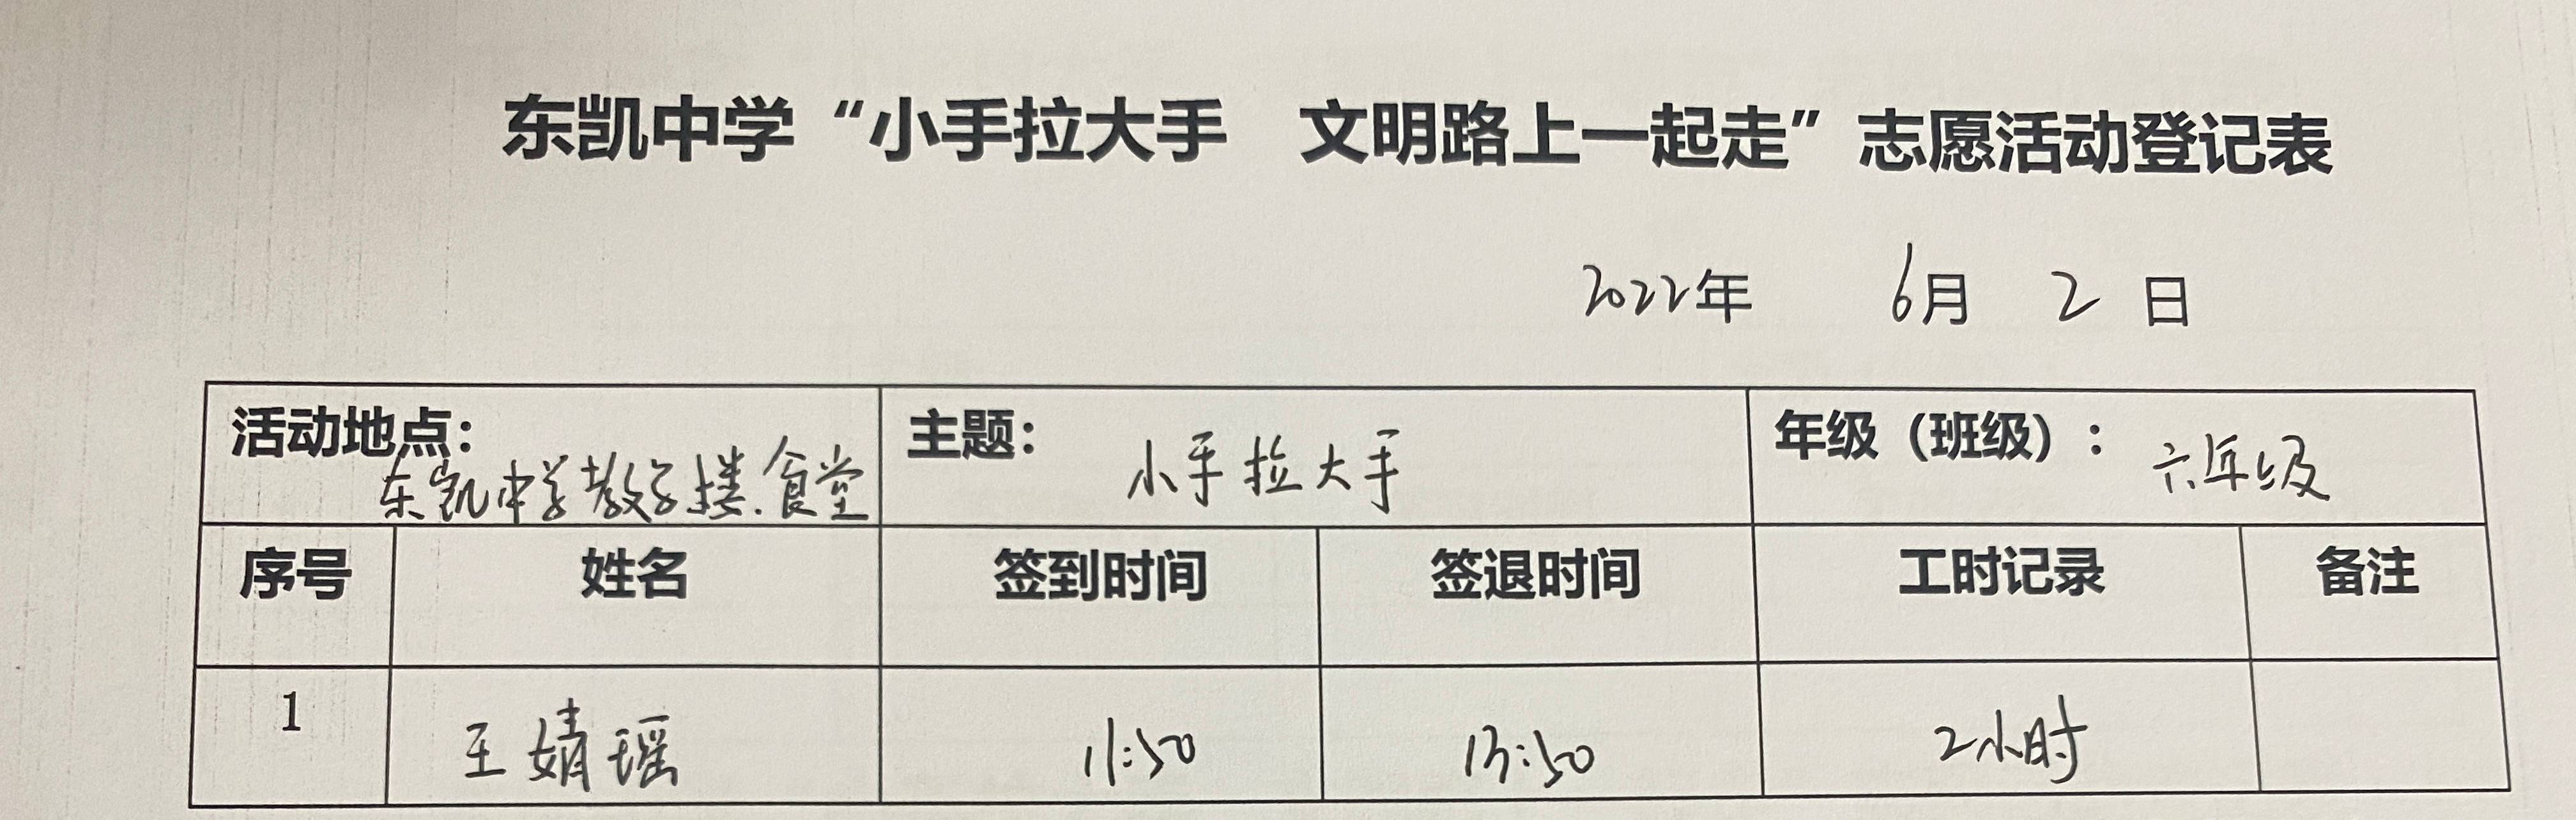 东凯中学“小手拉大手 文明路上一起走”志愿活动登记表
2022年 6月 2日
活动地点：东凯中学教学楼.食堂 主题：小手拉大手 年级（班级）：六年级
序号 姓名 签到时间 签退时间 工时记录 备注
1 王婧瑶 11:50 13:50 2小时